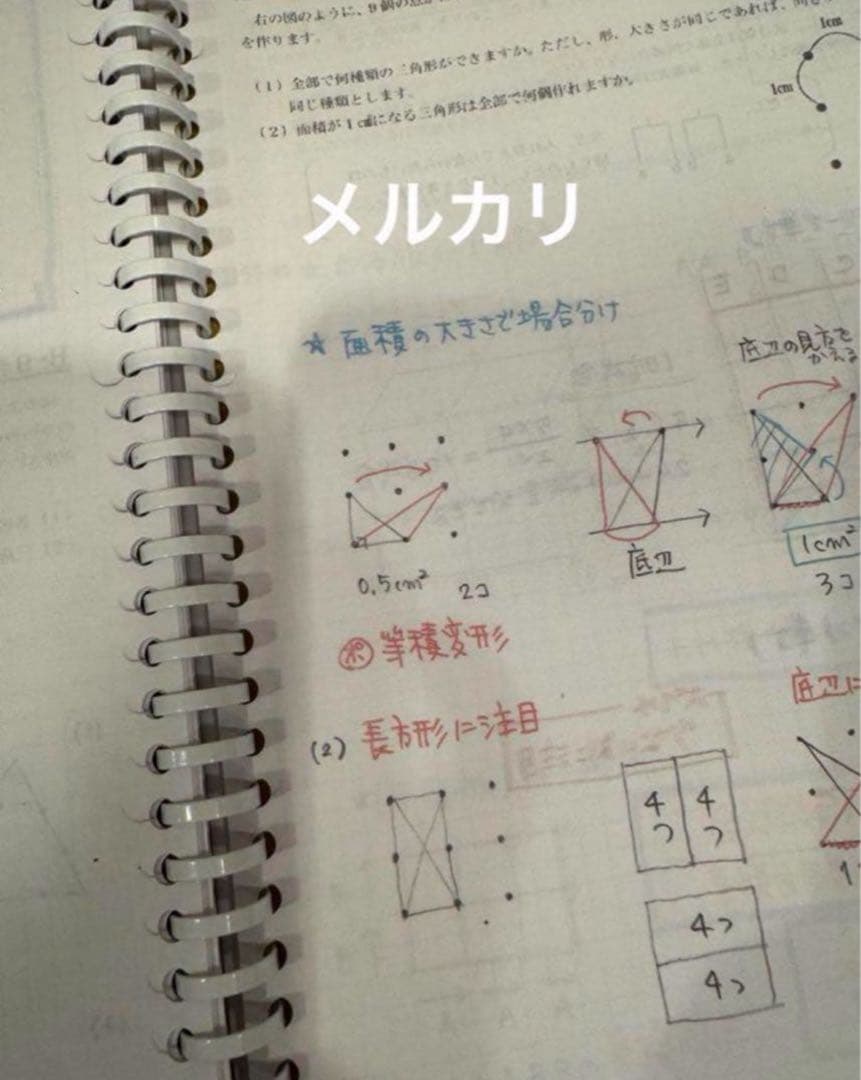 右の図のように、9個の点が
を作ります。
(1) 全部で何種類の三角形ができますか。ただし、形、大きさが同じであれば、
同じ種類とします。
(2) 面積が1㎠になる三角形は全部で何個作れますか。
1cm
1cm
メルカリ
☆ 面積の大きさで場合分け
底辺の見方を
かえる
底辺
0.5cm² 2コ
1cm²
3コ
ポ 等積変形
底辺に
(2) 長方形に注目
4つ 4つ
4つ
4つ